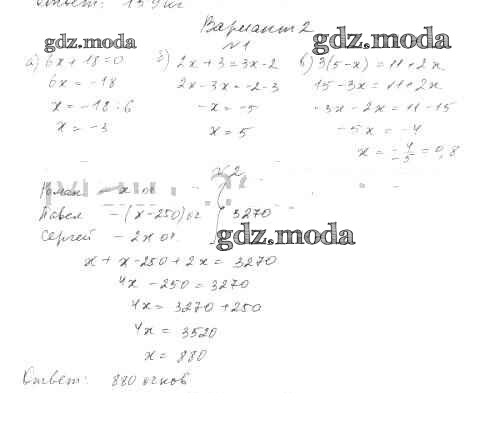 Ответ: 15
Вариант 2
gdz.moda
gdz.moda
gdz.moda
№1
а) 6x + 18 = 0 б) 2x + 3 = 3x - 2 в) 3(5 - x) = 11 + 2x
6x = -18 2x - 3x = -2 - 3 15 - 3x = 11 + 2x
x = -18 : 6 -x = -5 -3x - 2x = 11 - 15
x = -3 x = 5 -5x = -4
x = -4/-5 = 0,8
№2
Роман - x
Павел - (x - 250) оч 3270
Сергей - 2x оч.
gdz.moda
x + x - 250 + 2x = 3270
4x - 250 = 3270
4x = 3270 + 250
4x = 3520
x = 880
Ответ: 880 очков